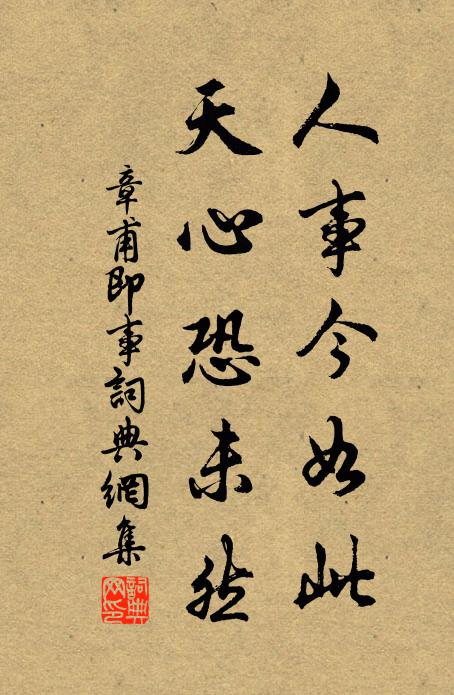 人事今如此
天心恐未然
章甫即事詞典網集
詞典網印